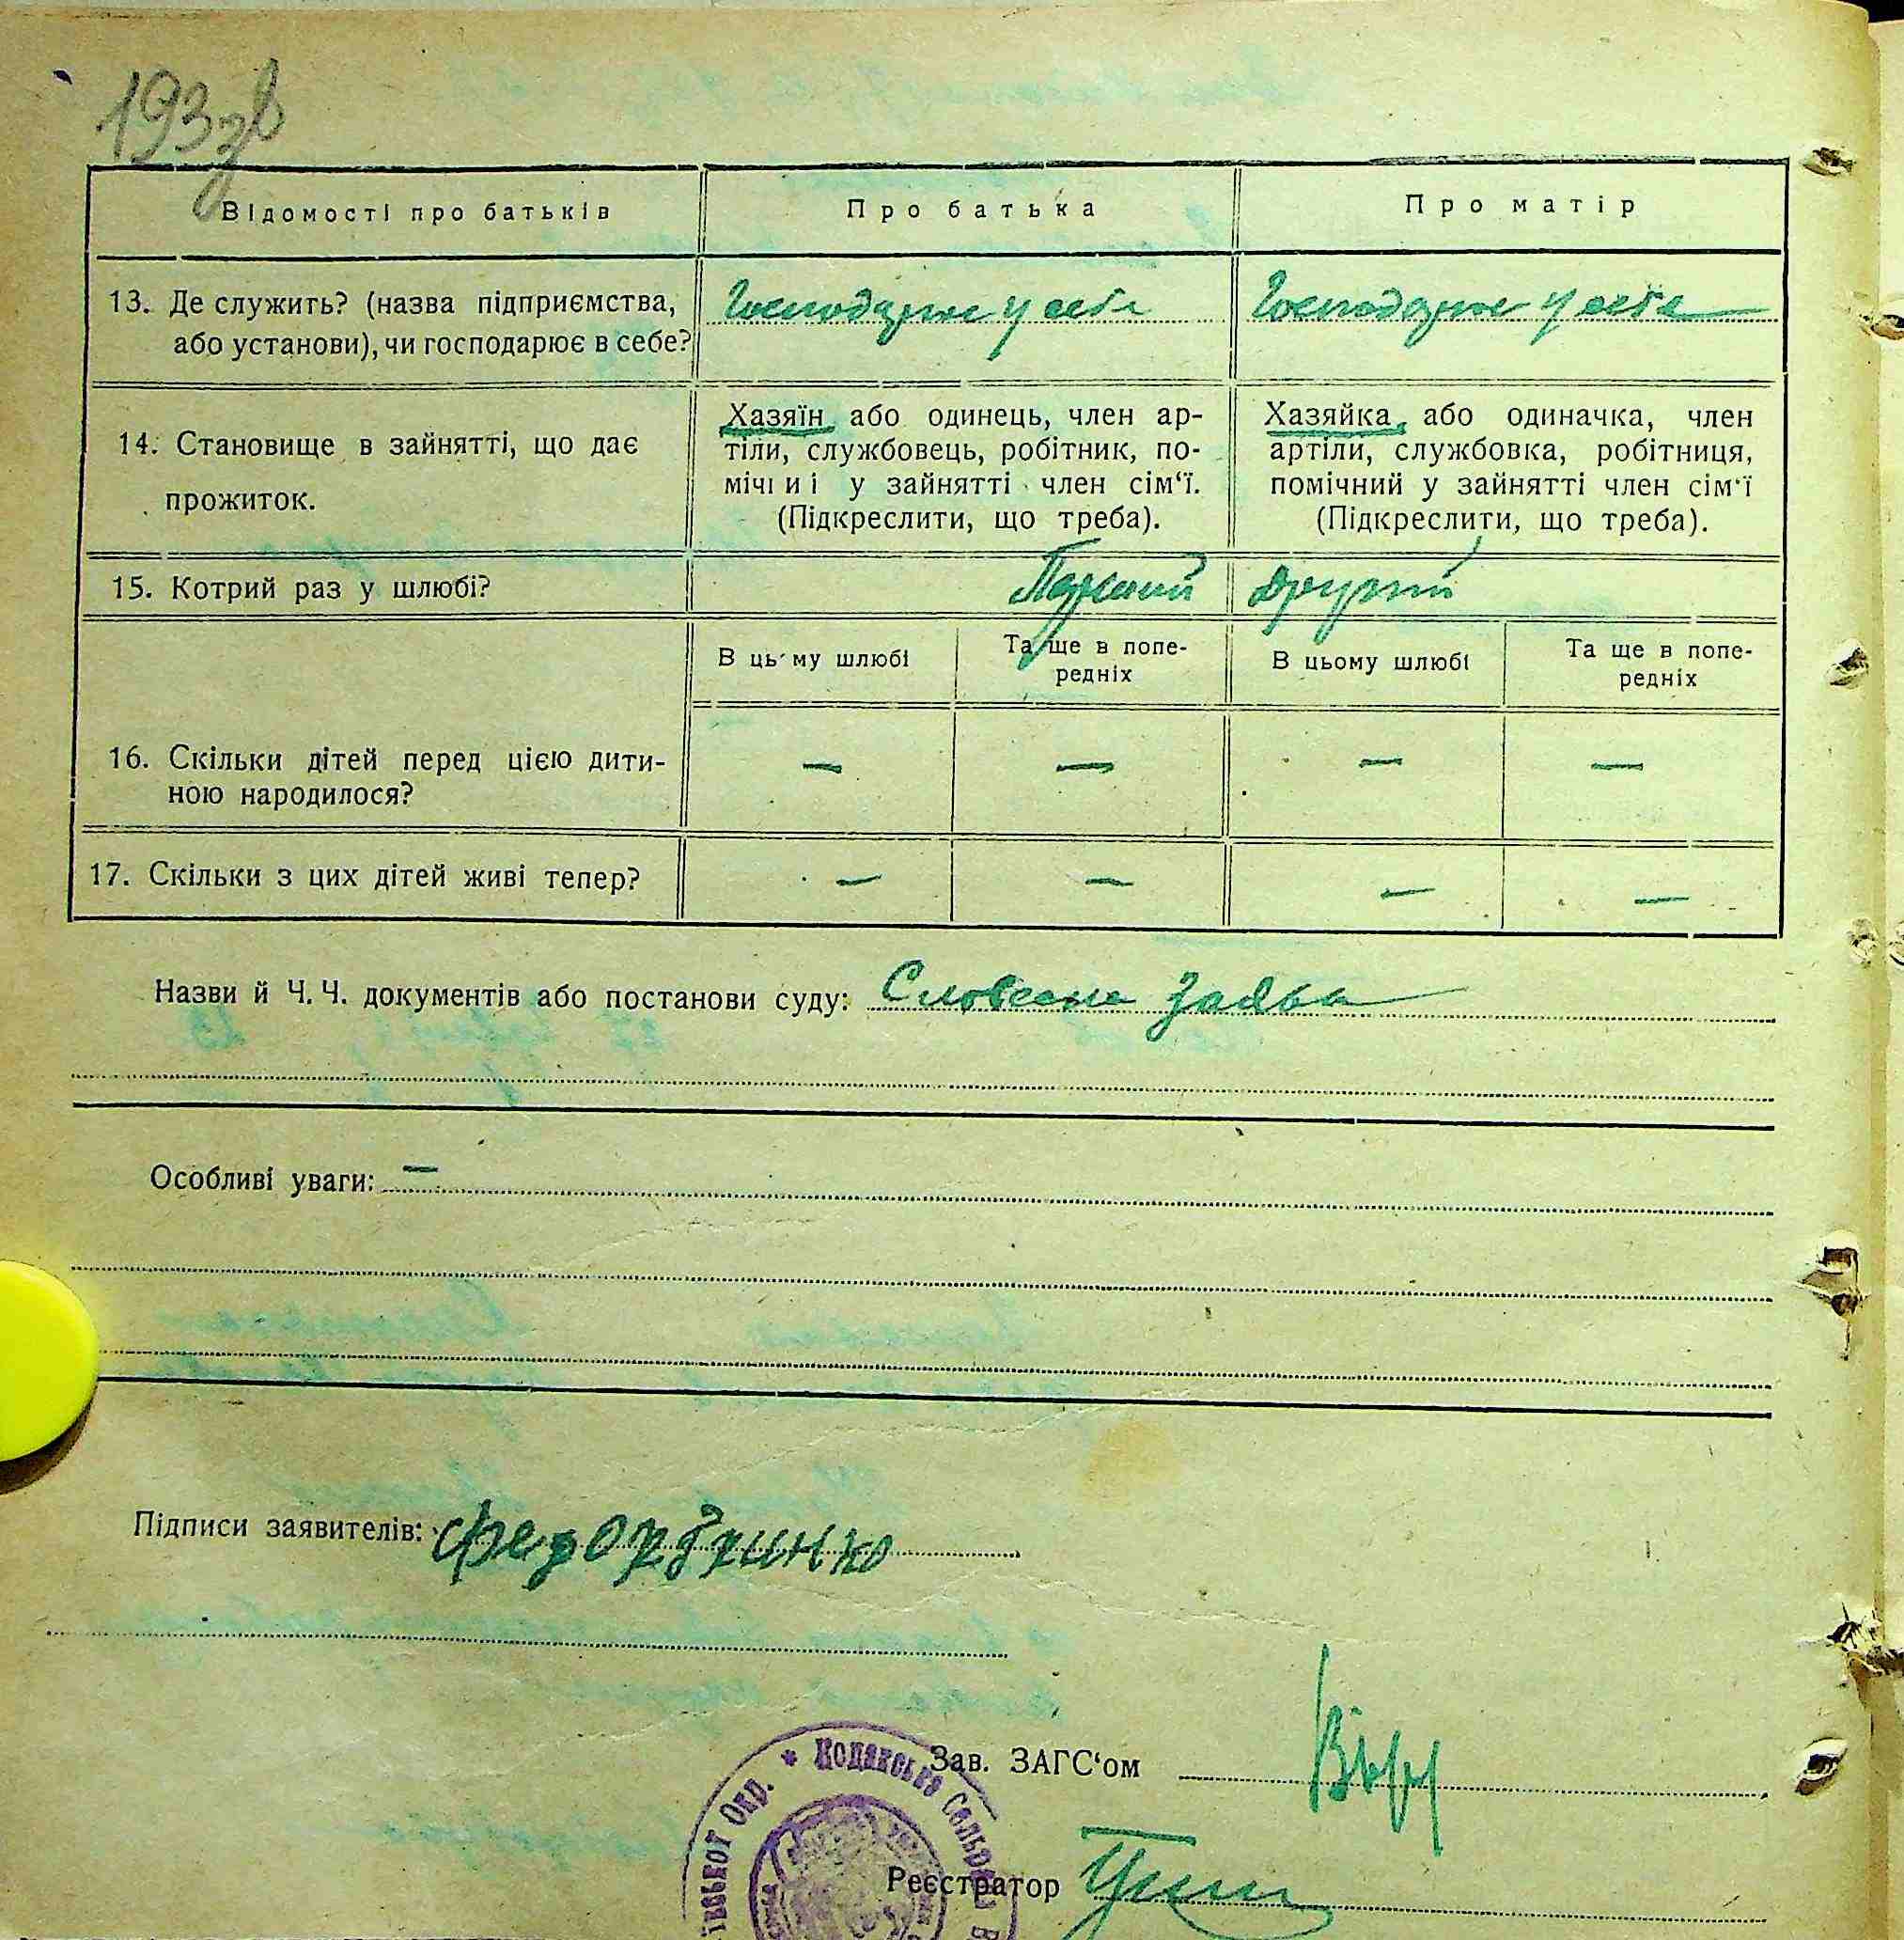 193зв
Відомості про батьків
Про батька
Про матір
13. Де служить? (назва підприємства,
або установи), чи господарює в себе?
Господарює у себе
Господарює у себе
14. Становище в зайнятті, що дає
прожиток.
Хазяїн або одинець, член ар-
тіли, службовець, робітник, по-
мічниі у зайнятті член сім'ї.
(Підкреслити, що треба).
Хазяйка, або одиначка, член
артіли, службовка, робітниця,
помічний у зайнятті член сім'ї
(Підкреслити, що треба).
15. Котрий раз у шлюбі?
Перший
Другий
В цьому шлюбі
Та ще в попе-
редніх
В цьому шлюбі
Та ще в попе-
редніх
16. Скільки дітей перед цією дити-
ною народилося?
— — — —
17. Скільки з цих дітей живі тепер?
— — — —
Назви й Ч. Ч. документів або постанови суду: Словесна заява
Особливі уваги: —
Підписи заявителів:
Зав. ЗАГС'ом
Реєстратор
Окр. * Кодакська Сельрада